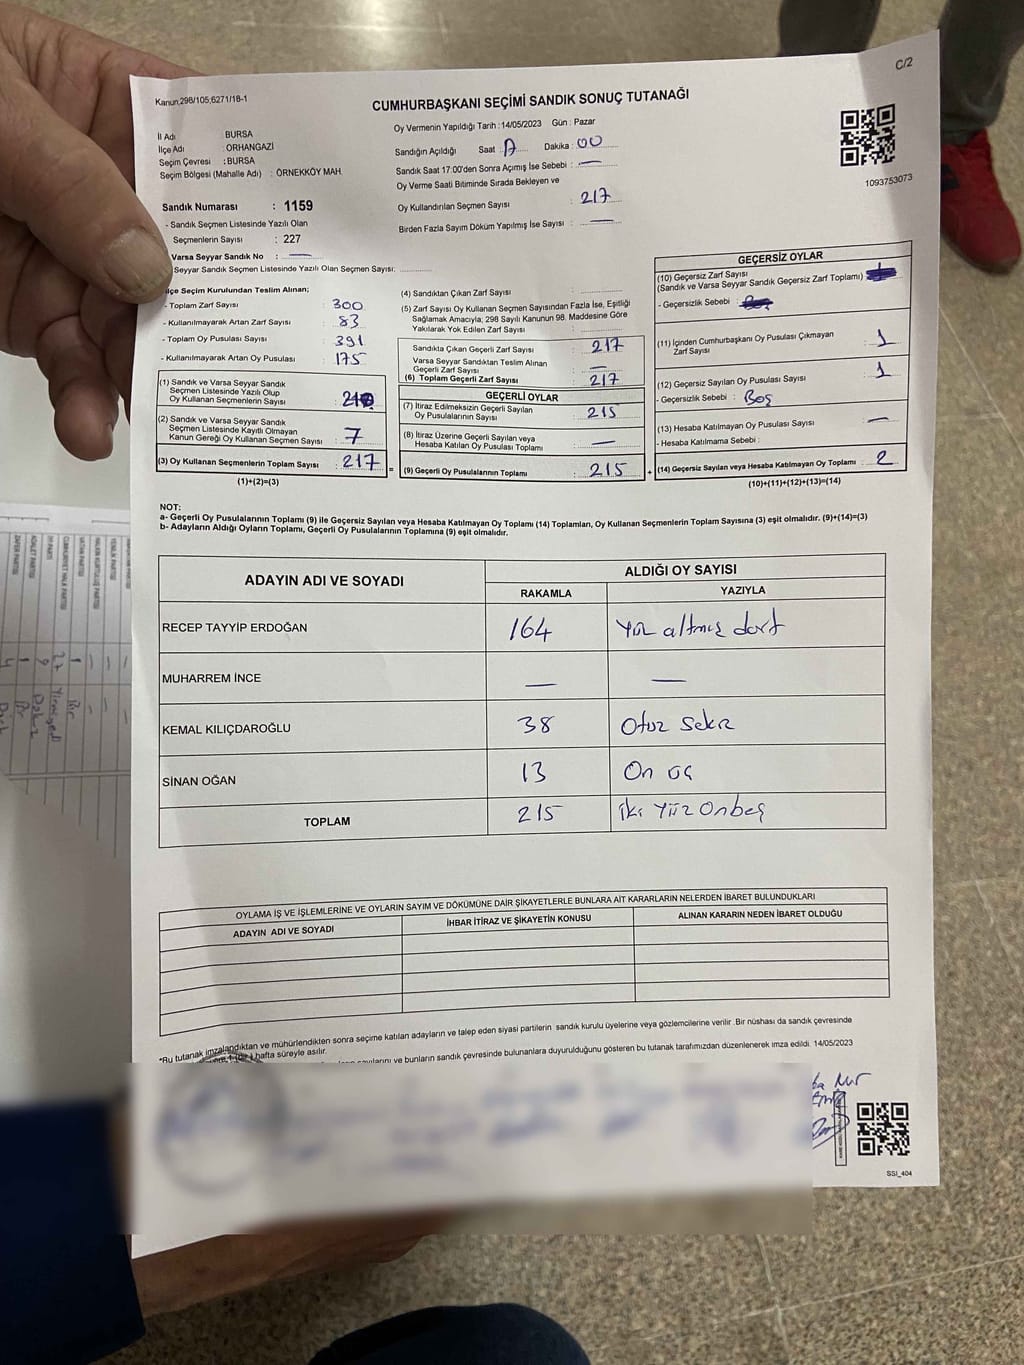 C/2
Kanun,298/105,6271/18-1
CUMHURBAŞKANI SEÇİMİ SANDIK SONUÇ TUTANAĞI
İl Adı BURSA
İlçe Adı : ORHANGAZİ
Seçim Çevresi : BURSA
Seçim Bölgesi (Mahalle Adı) : ÖRNEKKÖY MAH.
Oy Vermenin Yapıldığı Tarih :14/05/2023 Gün : Pazar
Sandığın Açıldığı Saat Dakika : 00
Sandık Saat 17:00'den Sonra Açımış İse Sebebi : —
Oy Verme Saati Bitiminde Sırada Bekleyen ve
Oy Kullandırılan Seçmen Sayısı : 217
Birden Fazla Sayım Döküm Yapılmış İse Sayısı : —
1093753073
Sandık Numarası : 1159
- Sandık Seçmen Listesinde Yazılı Olan
Seçmenlerin Sayısı : 227
Varsa Seyyar Sandık No : —
Seyyar Sandık Seçmen Listesinde Yazılı Olan Seçmen Sayısı:
lçe Seçim Kurulundan Teslim Alınan;
- Toplam Zarf Sayısı : 300
- Kullanılmayarak Artan Zarf Sayısı : 83
- Toplam Oy Pusulası Sayısı : 391
- Kullanılmayarak Artan Oy Pusulası : 175
(1) Sandık ve Varsa Seyyar Sandık
Seçmen Listesinde Yazılı Olup
Oy Kullanan Seçmenlerin Sayısı :
(2) Sandık ve Varsa Seyyar Sandık
Seçmen Listesinde Kayıtlı Olmayan
Kanun Gereği Oy Kullanan Seçmen Sayısı : 7
(3) Oy Kullanan Seçmenlerin Toplam Sayısı : 217
(1)+(2)=(3)
(4) Sandıktan Çıkan Zarf Sayısı :
(5) Zarf Sayısı Oy Kullanan Seçmen Sayısından Fazla İse, Eşitliği
Sağlamak Amacıyla, 298 Sayılı Kanunun 98. Maddesine Göre
Yakılarak Yok Edilen Zarf Sayısı :
Sandıkta Çıkan Geçerli Zarf Sayısı : 217
Varsa Seyyar Sandıktan Teslim Alınan
Geçerli Zarf Sayısı : —
(6) Toplam Geçerli Zarf Sayısı : 217
=
GEÇERLİ OYLAR
(7) İtiraz Edilmeksizin Geçerli Sayılan
Oy Pusulalarının Sayısı : 215
(8) İtiraz Üzerine Geçerli Sayılan veya
Hesaba Katılan Oy Pusulası Toplamı : —
(9) Geçerli Oy Pusulalarının Toplamı : 215
+
GEÇERSİZ OYLAR
(10) Geçersiz Zarf Sayısı :
(Sandık ve Varsa Seyyar Sandık Geçersiz Zarf Toplamı)
- Geçersizlik Sebebi :
(11) İçinden Cumhurbaşkanı Oy Pusulası Çıkmayan
Zarf Sayısı : 1
(12) Geçersiz Sayılan Oy Pusulası Sayısı : 1
- Geçersizlik Sebebi : Boş
(13) Hesaba Katılmayan Oy Pusulası Sayısı : —
- Hesaba Katılmama Sebebi :
(14) Geçersiz Sayılan veya Hesaba Katılmayan Oy Toplamı : 2
(10)+(11)+(12)+(13)=(14)
NOT:
a- Geçerli Oy Pusulalarının Toplamı (9) ile Geçersiz Sayılan veya Hesaba Katılmayan Oy Toplamı (14) Toplamları, Oy Kullanan Seçmenlerin Toplam Sayısına (3) eşit olmalıdır. (9)+(14)=(3)
b- Adayların Aldığı Oyların Toplamı, Geçerli Oy Pusulalarının Toplamına (9) eşit olmalıdır.
ADAYIN ADI VE SOYADI ALDIĞI OY SAYISI
RAKAMLA YAZIYLA
RECEP TAYYİP ERDOĞAN 164 Yüz altmış dört
MUHARREM İNCE — —
KEMAL KILIÇDAROĞLU 38 Otuz Sekiz
SİNAN OĞAN 13 On üç
TOPLAM 215 İki Yüz Onbeş
OYLAMA İŞ VE İŞLEMLERİNE VE OYLARIN SAYIM VE DÖKÜMÜNE DAİR ŞİKAYETLERLE BUNLARA AİT KARARLARIN NELERDEN İBARET BULUNDUKLARI
ADAYIN ADI VE SOYADI İHBAR İTİRAZ VE ŞİKAYETİN KONUSU ALINAN KARARIN NEDEN İBARET OLDUĞU
*Bu tutanak imzalandıktan ve mühürlendikten sonra seçime katılan adayların ve talep eden siyasi partilerin sandık kurulu üyelerine veya gözlemcilerine verilir .Bir nüshası da sandık çevresinde
hafta süreyle asılır.
ve bunların sandık çevresinde bulunanlara duyurulduğunu gösteren bu tutanak tarafımızdan düzenlenerek imza edildi. 14/05/2023
Nur
SSI_404
YENİLİK PARTİSİ
HALKIN KURTULUŞ PARTİSİ
VATAN PARTİSİ
CUMHURİYET HALK PARTİSİ
İYİ PARTİ
ADALET PARTİSİ
ZAFER PARTİSİ